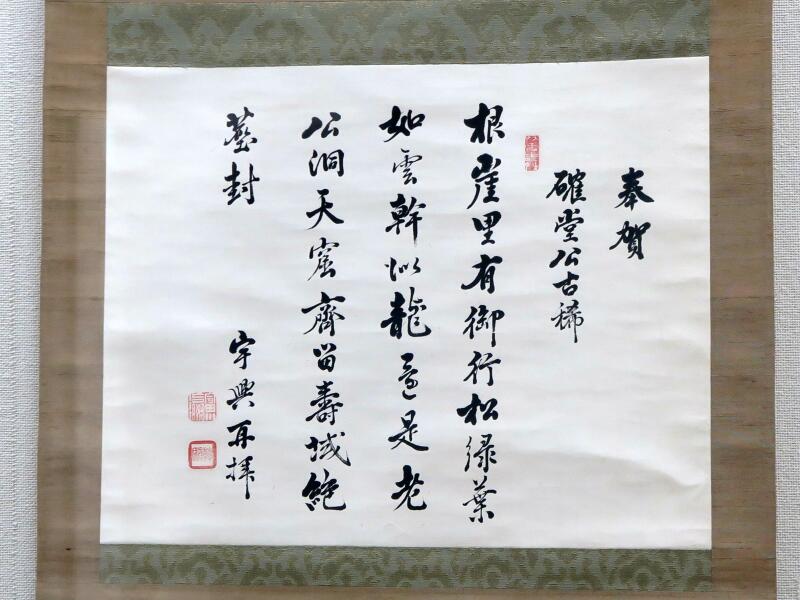 奉賀
確堂公古稀
根崖里有御行松緑葉
如雲幹似龍意是老
公洞天窟齊留壽域絶
塵封
宇興再拝